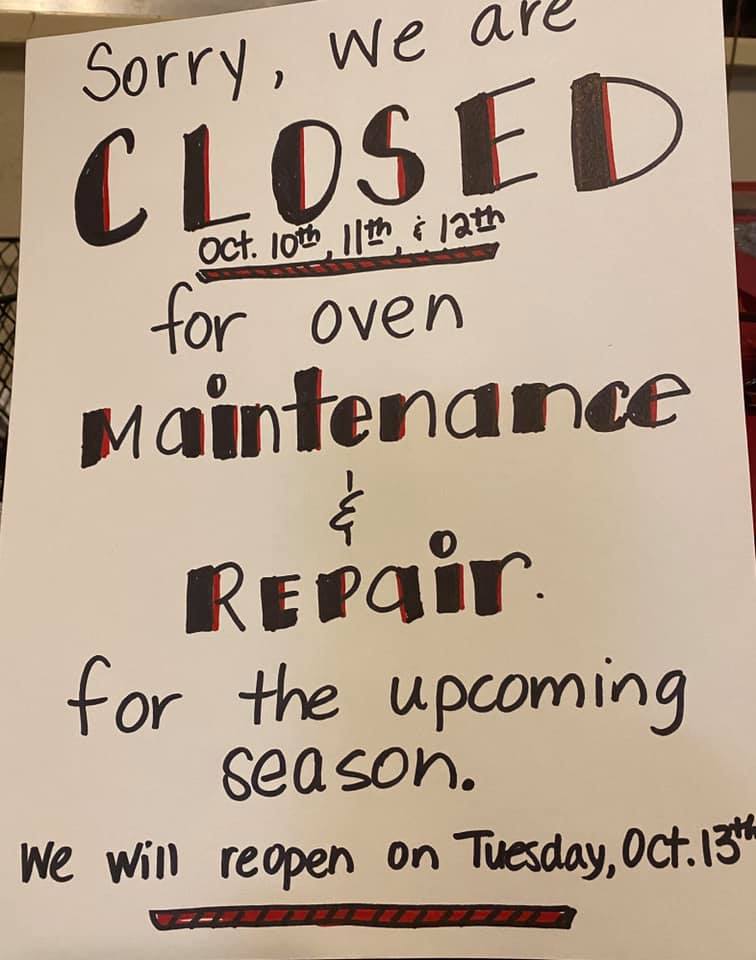 Sorry, we are
CLOSED
Oct. 10th, 11th, & 12th
for oven
Maintenance
&
REPair.
for the upcoming
season.
We will reopen on Tuesday, Oct. 13th